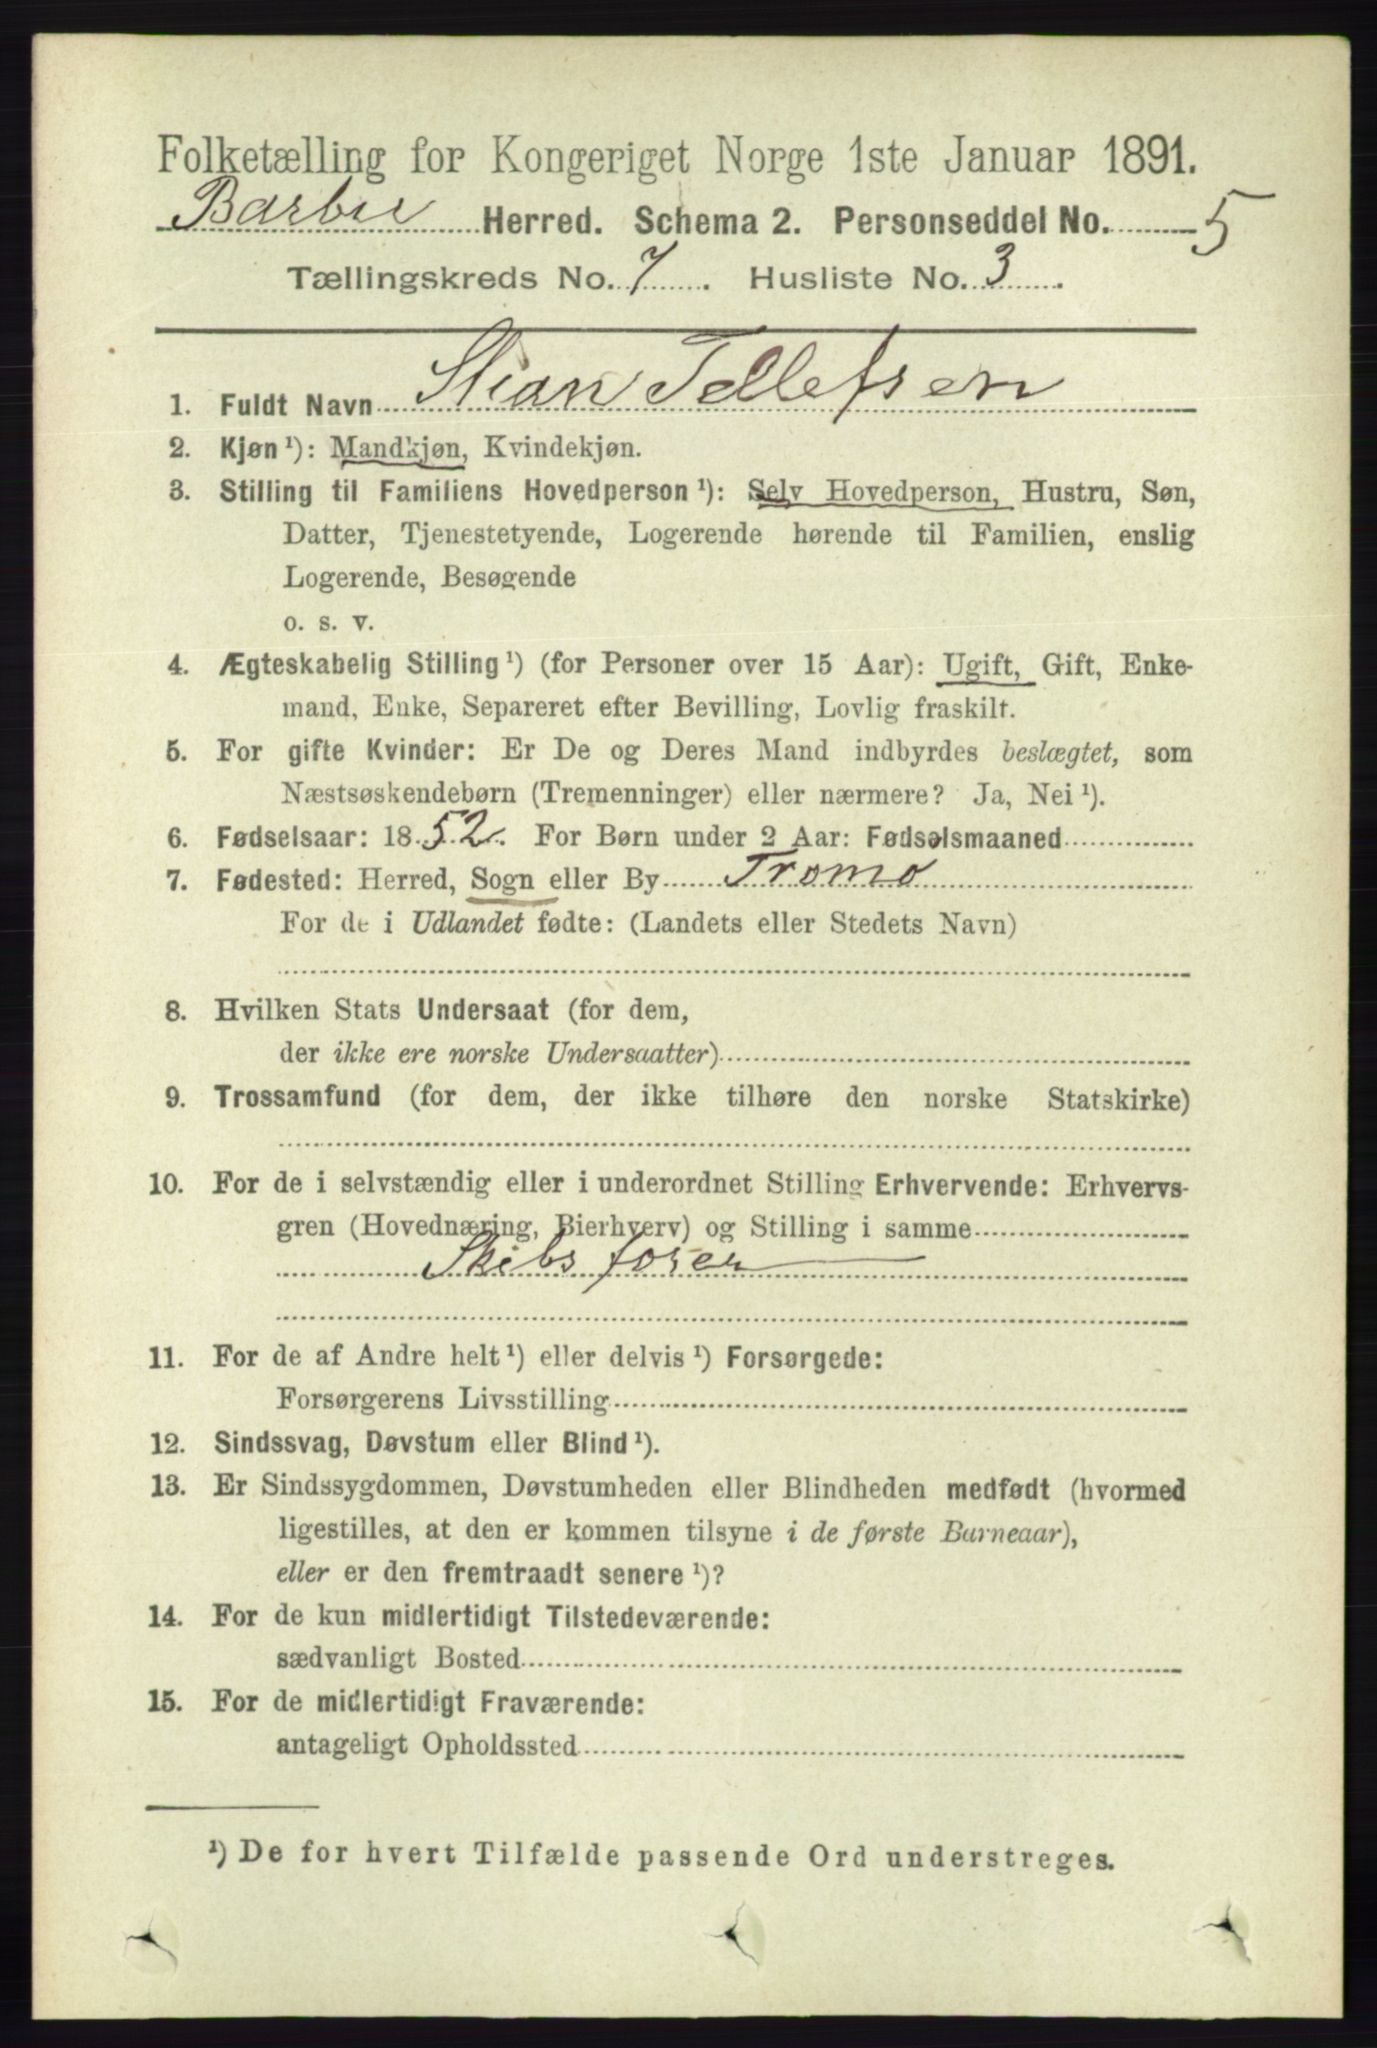 Folketælling for Kongeriget Norge 1ste Januar 1891.
Barbu Herred. Schema 2. Personseddel No. 5
Tællingskreds No. 7. Husliste No. 3.
1. Fuldt Navn Stian Tellefsen
2. Kjøn ¹): Mandkjøn, Kvindekjøn.
3. Stilling til Familiens Hovedperson ¹): Selv Hovedperson, Hustru, Søn,
Datter, Tjenestetyende, Logerende hørende til Familien, enslig
Logerende, Besøgende
o. s. v.
4. Ægteskabelig Stilling ¹) (for Personer over 15 Aar): Ugift, Gift, Enke-
mand, Enke, Separeret efter Bevilling, Lovlig fraskilt.
5. For gifte Kvinder: Er De og Deres Mand indbyrdes beslægtet, som
Næstsøskendebørn (Tremenninger) eller nærmere? Ja, Nei ¹).
6. Fødselsaar: 1852. For Børn under 2 Aar: Fødselsmaaned
7. Fødested: Herred, Sogn eller By Tromø
For de i Udlandet fødte: (Landets eller Stedets Navn)
8. Hvilken Stats Undersaat (for dem,
der ikke ere norske Undersaatter)
9. Trossamfund (for dem, der ikke tilhøre den norske Statskirke)
10. For de i selvstændig eller i underordnet Stilling Erhvervende: Erhvervs-
gren (Hovednæring, Bierhverv) og Stilling i samme
Skibsfører
11. For de af Andre helt ¹) eller delvis ¹) Forsørgede:
Forsørgerens Livsstilling
12. Sindssvag, Døvstum eller Blind ¹).
13. Er Sindssygdommen, Døvstumheden eller Blindheden medfødt (hvormed
ligestilles, at den er kommen tilsyne i de første Barneaar),
eller er den fremtraadt senere ¹)?
14. For de kun midlertidigt Tilstedeværende:
sædvanligt Bosted
15. For de midlertidigt Fraværende:
antageligt Opholdssted
¹) De for hvert Tilfælde passende Ord understreges.